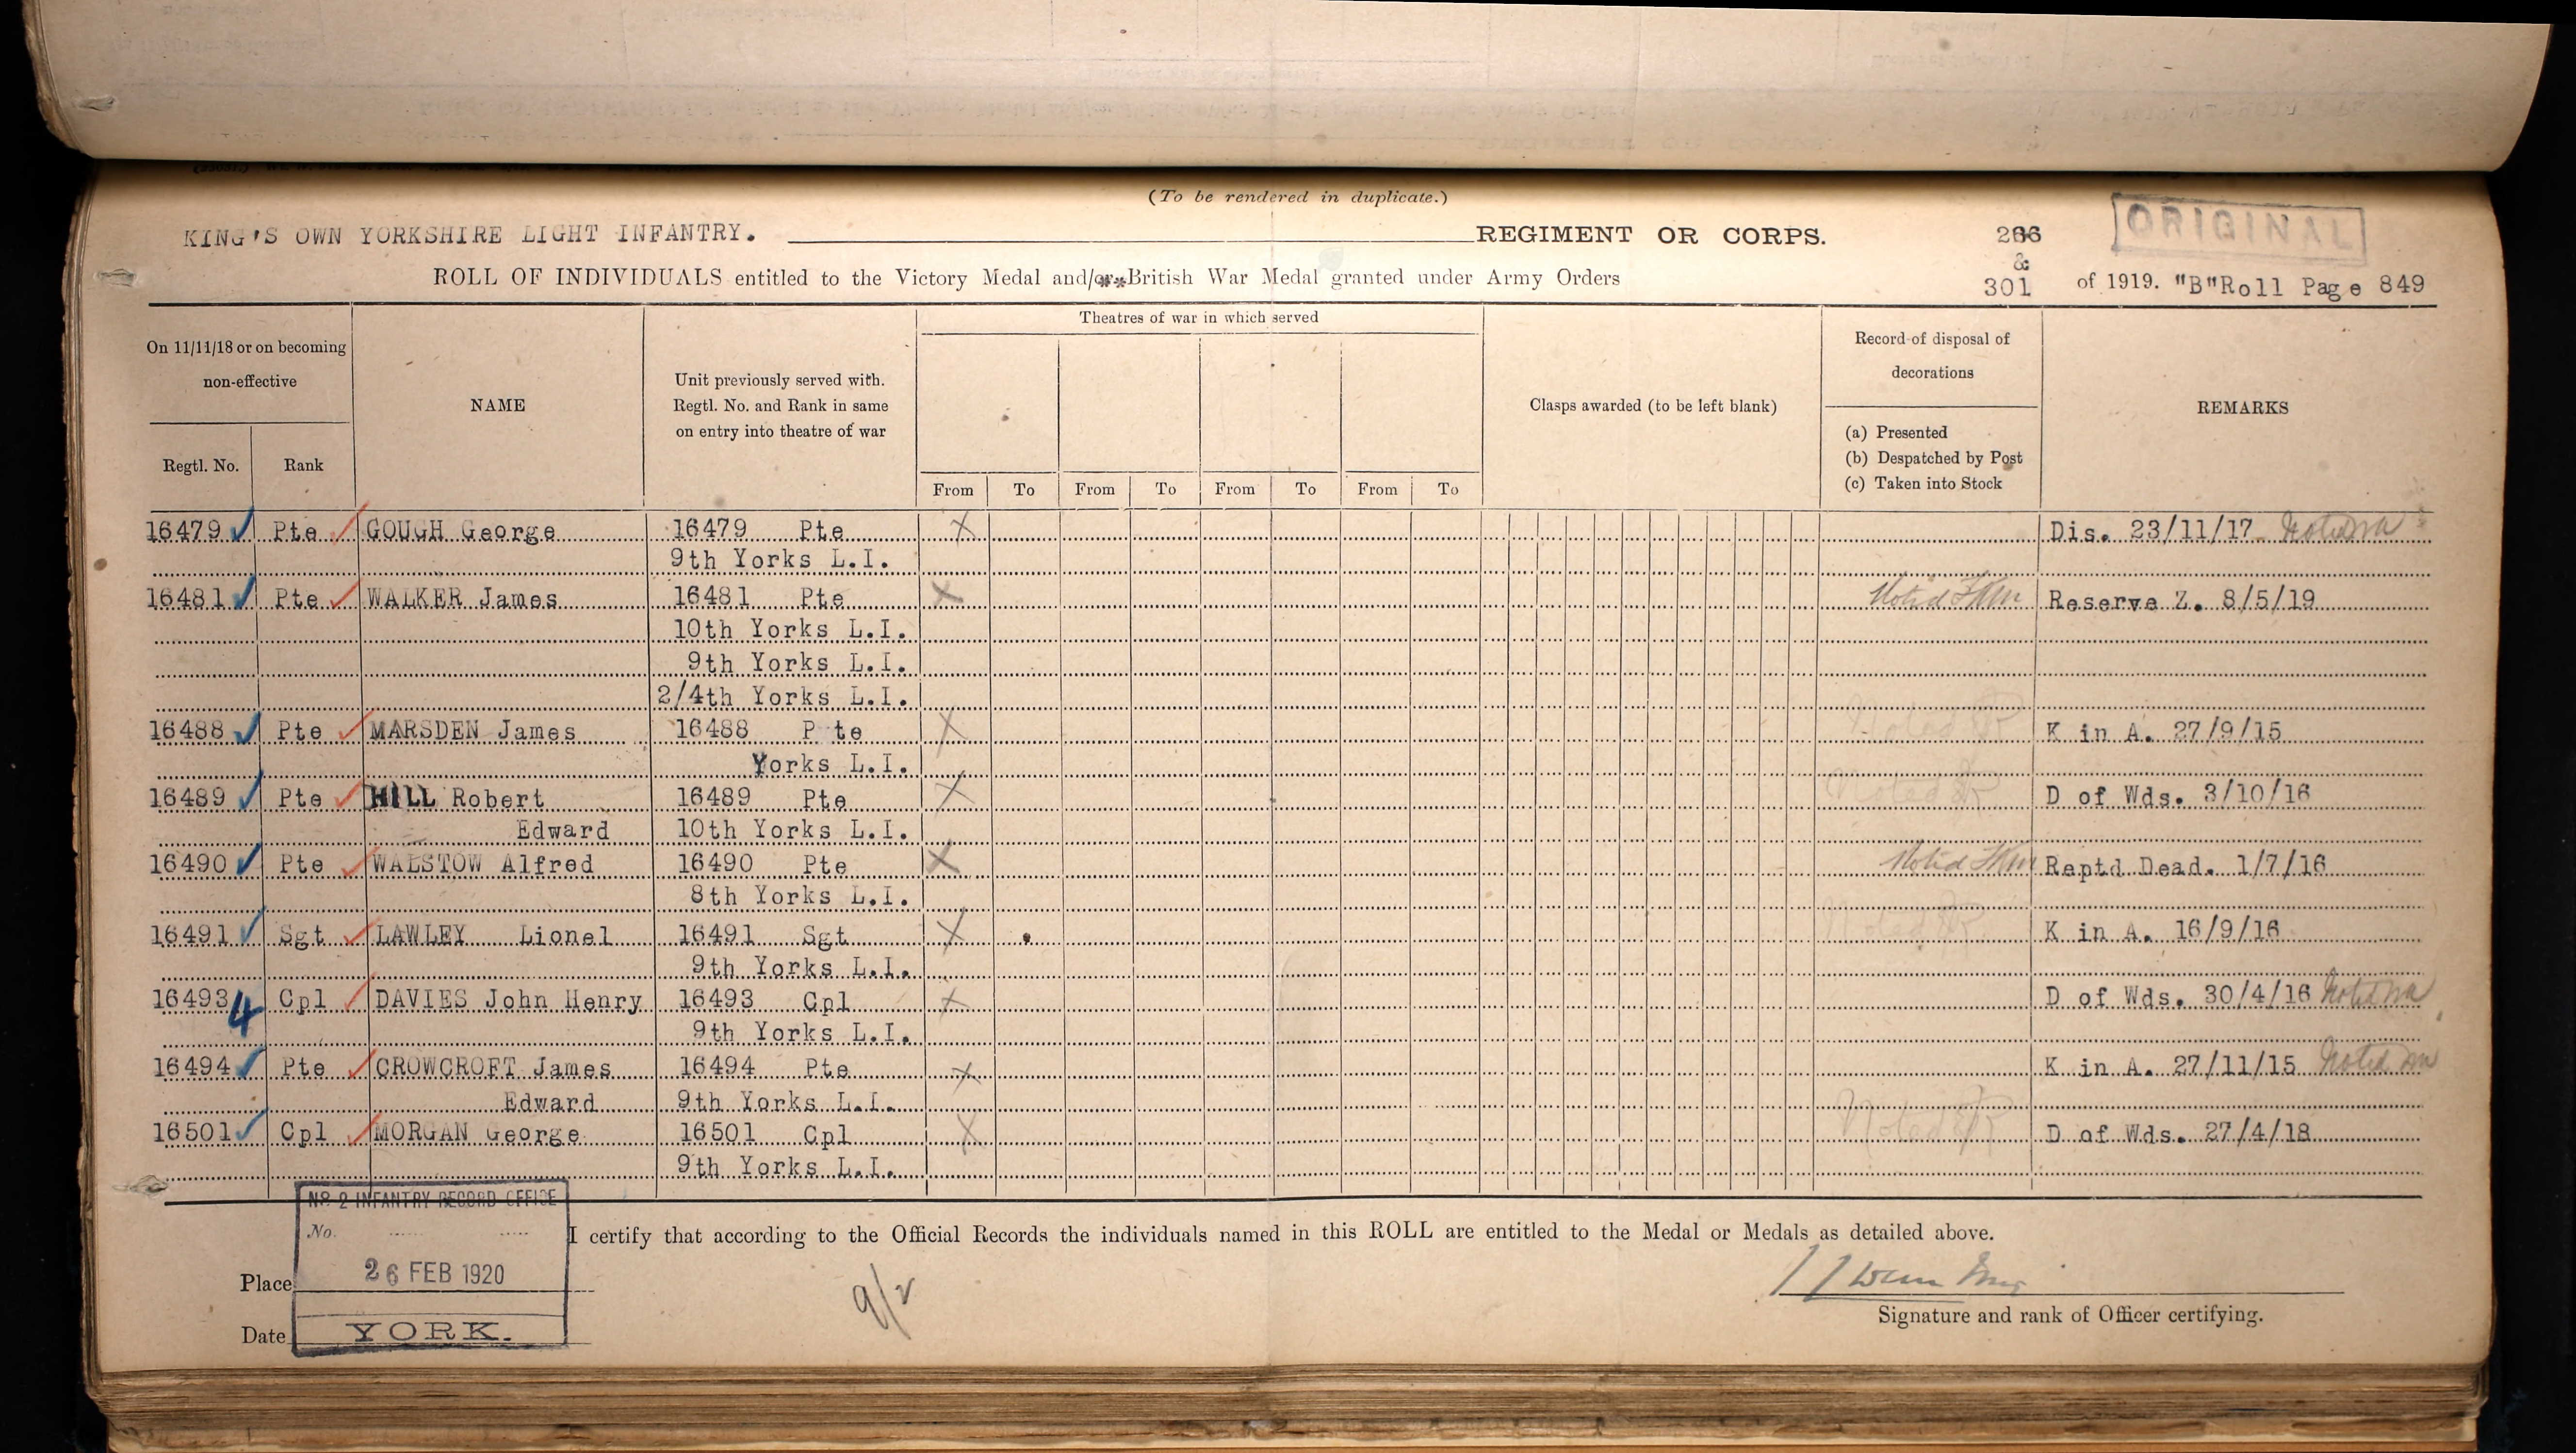 (To be rendered in duplicate.)
KING'S OWN YORKSHIRE LIGHT INFANTRY. REGIMENT OR CORPS. 266 ORIGINAL
&
ROLL OF INDIVIDUALS entitled to the Victory Medal and/or British War Medal granted under Army Orders 301 of 1919. "B"Roll Page 849
On 11/11/18 or on becoming non-effective
Regtl. No.
Rank
NAME
Unit previously served with.
Regtl. No. and Rank in same
on entry into theatre of war
Theatres of war in which served
From To From To From To From To
Clasps awarded (to be left blank)
Record of disposal of
decorations
(a) Presented
(b) Despatched by Post
(c) Taken into Stock
REMARKS
16479 Pte GOUGH George 16479 Pte X Dis. 23/11/17 Noted
9th Yorks L.I.
16481 Pte WALKER James 16481 Pte X Noted Reserve Z. 8/5/19
10th Yorks L.I.
9th Yorks L.I.
2/4th Yorks L.I.
16488 Pte MARSDEN James 16488 P te X Noted K in A. 27/9/15
Yorks L.I.
16489 Pte HILL Robert 16489 Pte X Noted D of Wds. 3/10/16
Edward 10th Yorks L.I.
16490 Pte WALSTOW Alfred 16490 Pte X Noted Reptd Dead. 1/7/16
8th Yorks L.I.
16491 Sgt LAWLEY Lionel 16491 Sgt X Noted K in A. 16/9/16
9th Yorks L.I.
16493 Cpl DAVIES John Henry 16493 Cpl X D of Wds. 30/4/16 Noted
4 9th Yorks L.I.
16494 Pte CROWCROFT James 16494 Pte X K in A. 27/11/15 Noted
Edward 9th Yorks L.I.
16501 Cpl MORGAN George 16501 Cpl X Noted D of Wds. 27/4/18
9th Yorks L.I.
No. 2 INFANTRY RECORD OFFICE
No.
I certify that according to the Official Records the individuals named in this ROLL are entitled to the Medal or Medals as detailed above.
Place 26 FEB 1920
9/2
Signature and rank of Officer certifying.
Date YORK.